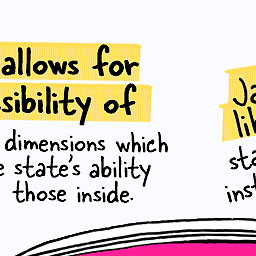 allows for
sibility of
dimensions which
state's ability
those inside.